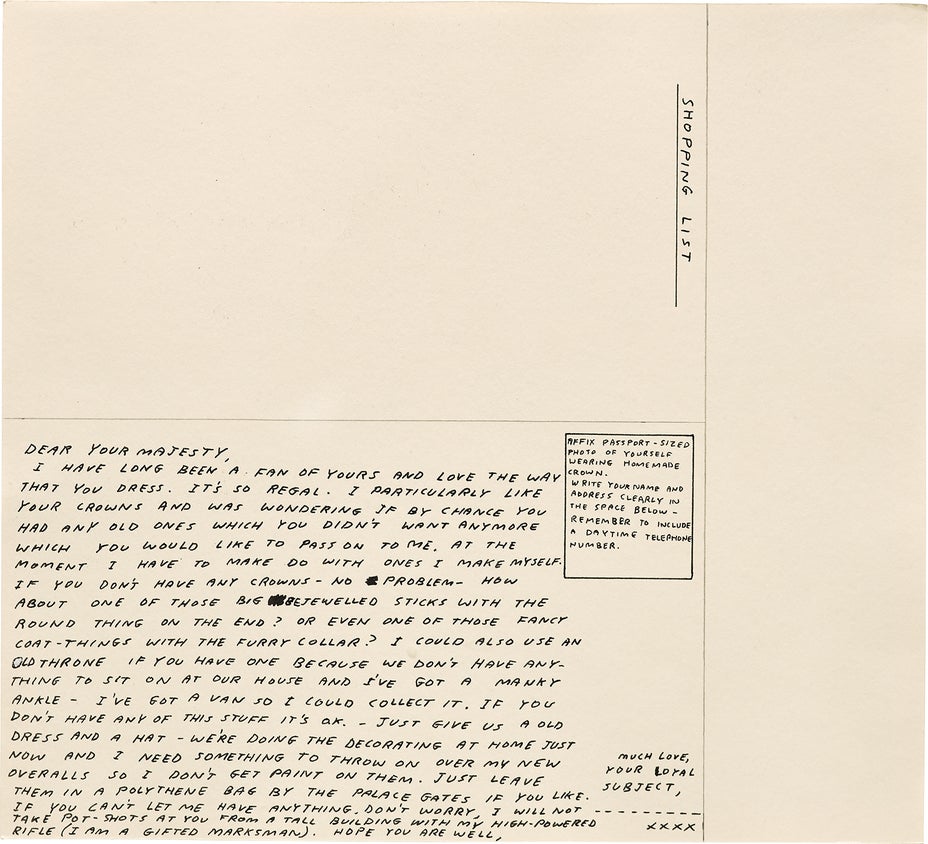 SHOPPING LIST
DEAR YOUR MAJESTY,
I HAVE LONG BEEN A FAN OF YOURS AND LOVE THE WAY
THAT YOU DRESS. IT'S SO REGAL. I PARTICULARLY LIKE
YOUR CROWNS AND WAS WONDERING IF BY CHANCE YOU
HAD ANY OLD ONES WHICH YOU DIDN'T WANT ANYMORE
WHICH YOU WOULD LIKE TO PASS ON TO ME. AT THE
MOMENT I HAVE TO MAKE DO WITH ONES I MAKE MYSELF.
IF YOU DON'T HAVE ANY CROWNS - NO PROBLEM - HOW
ABOUT ONE OF THOSE BIG BEJEWELLED STICKS WITH THE
ROUND THING ON THE END? OR EVEN ONE OF THOSE FANCY
COAT-THINGS WITH THE FURRY COLLAR? I COULD ALSO USE AN
OLD THRONE IF YOU HAVE ONE BECAUSE WE DON'T HAVE ANY-
THING TO SIT ON AT OUR HOUSE AND I'VE GOT A MANKY
ANKLE - I'VE GOT A VAN SO I COULD COLLECT IT. IF YOU
DON'T HAVE ANY OF THIS STUFF IT'S OK. - JUST GIVE US A OLD
DRESS AND A HAT - WE'RE DOING THE DECORATING AT HOME JUST
NOW AND I NEED SOMETHING TO THROW ON OVER MY NEW
OVERALLS SO I DON'T GET PAINT ON THEM. JUST LEAVE
THEM IN A POLYTHENE BAG BY THE PALACE GATES IF YOU LIKE.
IF YOU CAN'T LET ME HAVE ANYTHING, DON'T WORRY, I WILL NOT
TAKE POT-SHOTS AT YOU FROM A TALL BUILDING WITH MY HIGH-POWERED
RIFLE (I AM A GIFTED MARKSMAN). HOPE YOU ARE WELL,
MUCH LOVE,
YOUR LOYAL
SUBJECT,
XXXX
AFFIX PASSPORT-SIZED
PHOTO OF YOURSELF
WEARING HOMEMADE
CROWN.
WRITE YOUR NAME AND
ADDRESS CLEARLY IN
THE SPACE BELOW -
REMEMBER TO INCLUDE
A DAYTIME TELEPHONE
NUMBER.